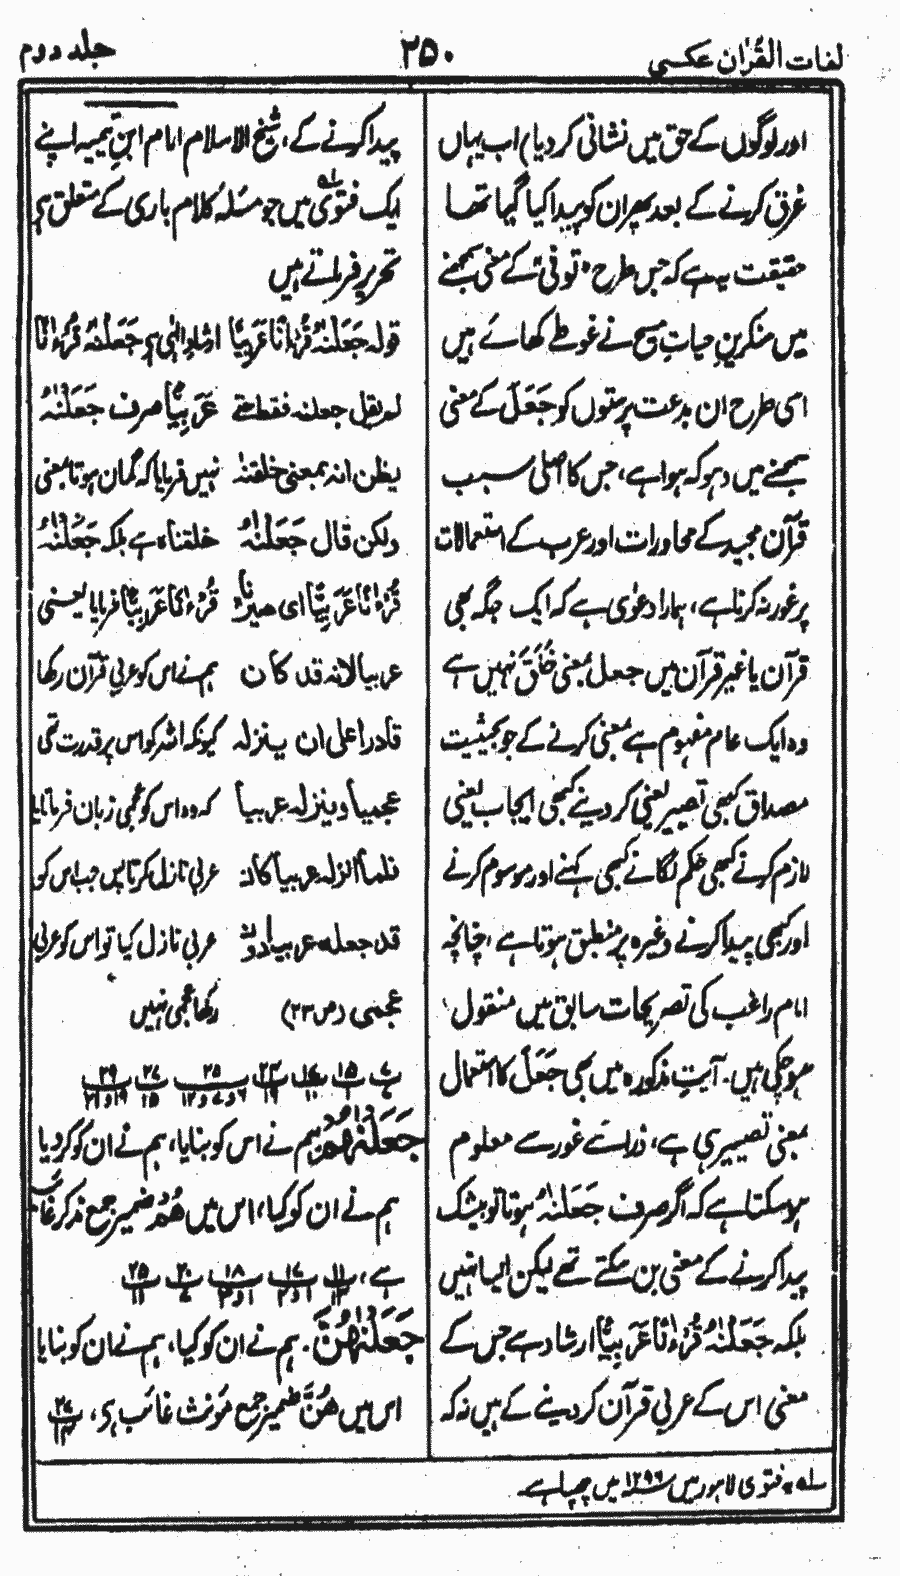 لغات القُرٰان عکسی
۲۵۰
جلد دوم
اور لوگوں کے حق میں نشانی کر دیا) اب یہاں
غرق کرنے کے بعد پھر ان کو پیدا کیا گیا تھا
حقیقت یہ ہے کہ جس طرح توفّی کے معنی سمجھنے
میں منکرینِ حیاتِ مسیح نے غوطے کھائے ہیں
اسی طرح ان بدعت پرستوں کو جَعَلَ کے معنی
سمجھنے میں دہوکہ ہوا ہے، جس کا اصلی سبب
قرآن مجید کے محاورات اور عرب کے استعمالات
پر غور نہ کرنا ہے، ہمارا دعوٰی ہے کہ ایک جگہ بھی
قرآن یا غیر قرآن میں جعل بمعنی خَلَقَ نہیں ہے
وہ ایک عام مفہوم ہے بمعنی کرنے کے جو بحیثیت
مصداق کبھی تصییر یعنی کر دینے کبھی ایجاب یعنی
لازم کرنے کبھی حکم لگانے کبھی کہنے اور موسوم کرنے
اور کبھی پیدا کرنے وغیرہ پر منطبق ہوتا ہے، چنانچہ
امام راغب کی تصریحات سابق میں منقول
ہوچکی ہیں۔ آیتِ مذکورہ میں بھی جَعَلَ کا استعمال
بمعنی تصییر ہی ہے، ذرا سے غور سے معلوم
ہوسکتا ہے کہ اگر صرف جَعَلْنٰہُ ہوتا تو بیشک
پیدا کرنے کے معنی بن سکتے تھے لیکن ایسا نہیں
بلکہ جَعَلْنٰہُ قُرْءٰنًا عَرَبِیًّا ارشاد ہے جس کے
معنی اس کے عربی قرآن کر دینے کے ہیں نہ کہ
پیدا کرنے کے، شیخ الاسلام امام ابنِ تیمیہ اپنے
ایک فتوٰی لہ میں جو مسئلہ کلام باری کے متعلق ہی
تحریر فرماتے ہیں
قولہ جَعَلْنٰہُ قُرْءٰنًا عَرَبِیًّا ارشادِ الٰہی ہی جَعَلْنٰہُ قُرْءٰنًا
لم یقل جعلنہ فقط حتے عَرَبِیًّا صرف جَعَلْنٰہُ
یظن انہ بمعنی خلقنہ نہیں فرمایا کہ گمان ہوتا بمعنی
ولکن قال جَعَلْنٰہُ خلقناہ ہے بلکہ جَعَلْنٰہُ
قُرْءٰنًا عَرَبِیًّا ای صیرناہ قُرْءٰنًا عَرَبِیًّا فرمایا یعنی
عربیا لانہ قد کان ہم نے اس کو عربی قرآن رکھا
قادرا علی ان ینزلہ کیونکہ اللہ کو اس پر قدرت تھی
عجمیا وینزلہ عربیا کہ وہ اس کو عجمی زبان فرماتا یا
فلما انزلہ عربیا کان عربی نازل کرتا پس جب اس کو
قد جعلہ عربیا دون عربی نازل کیا تو اس کو عربی
عجمی (ص۲۳) رکھا عجمی نہیں
۷ ۱۵ ۱۷ ۲۲ ۲۵ ۲۷ ۲۹
۱ ۱۰ ۱۶ ۶ و ۷ و ۱۲ ۱۵ ۱۹ و ۲۱
جَعَلْنٰھُمْ ہم نے اس کو بنایا، ہم نے ان کو کر دیا
ہم نے ان کو کیا، اس میں ھُمْ ضمیر جمع مذکر غائب
ہے، ۱۱ ۱۷ ۱۸ ۲۰ ۲۵
۱۴ ۱ و ۲ ۱ و ۳ ۷ ۱۱
جَعَلْنٰھُنَّ۔ ہم نے ان کو کیا، ہم نے ان کو بنایا
اس میں ھُنَّ ضمیر جمع مؤنث غائب ہی، ۲۷
۱۴
لہ یہ فتوی لاہور میں ۱۲۹۶ میں چھپا ہے۔